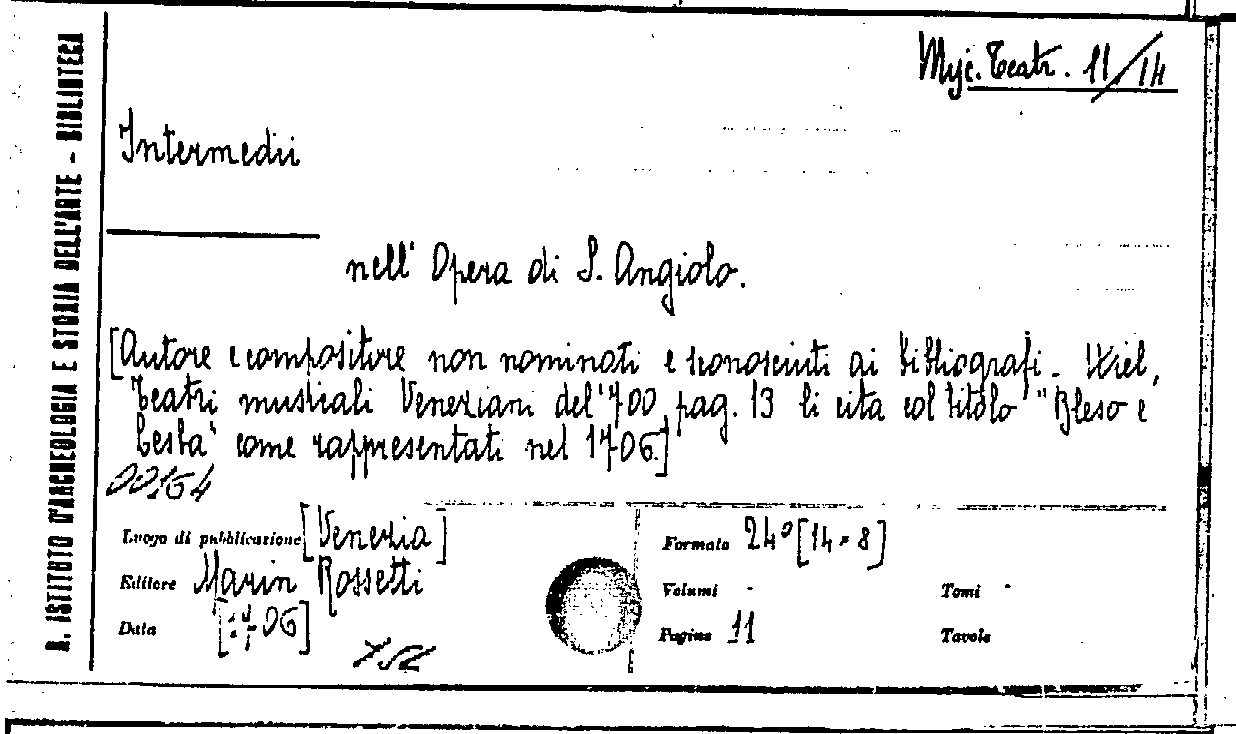 R. ISTITUTO D'ARCHEOLOGIA E STORIA DELL'ARTE - BIBLIOTECA
Teatr. 11/14
Intermedii
nell' Opera di S. Angiolo.
[Autore e compositore non nominati e sconosciuti ai bibliografi - Wiel,
Teatri musicali Veneziani del '700, pag. 13 li cita col titolo "Bleso e
Lesba" come rappresentati nel 1706.]
00164
Luogo di pubblicazione [Venezia]
Editore Marin Rossetti
Data [1706]
752
Formato 24° [14 × 8]
Volumi -
Tomi -
Pagine 11
Tavole